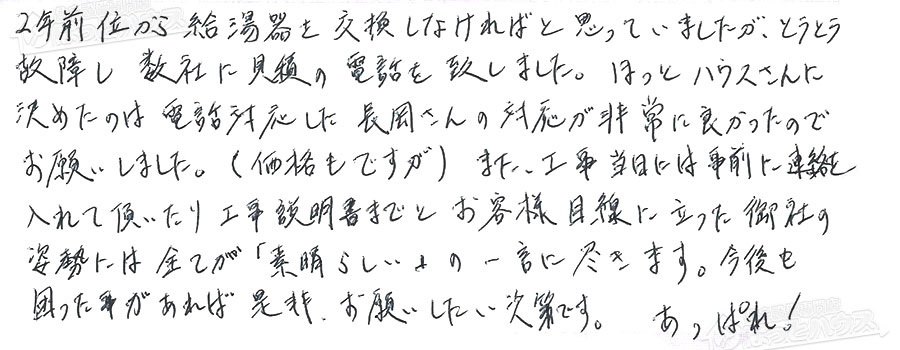 2年前位から給湯器を交換しなければと思っていましたが、とうとう
故障し数社に見積の電話を致しました。ほっとハウスさんに
決めたのは電話対応した長岡さんの対応が非常に良かったので
お願いしました。(価格もですが)また、工事当日には事前に連絡を
入れて頂いたり工事説明書までとお客様目線に立った御社の
姿勢には全てが「素晴らしい」の一言に尽きます。今後も
困った事があれば是非、お願いしたい次第です。 あっぱれ!